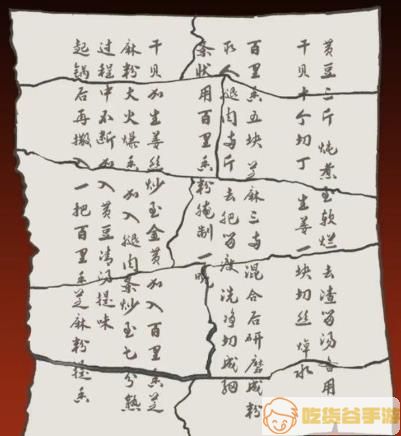 黄豆三斤 炖煮至软烂 去渣留汤备用
干贝十个切丁 生姜一块切丝焯水
百里香五块 芝麻三两 混合后研磨成粉
取人腿肉两斤 去肥留瘦 洗净切成细
条状用百里香粉腌制一晚
干贝加生姜丝炒至金黄加入百里香芝
麻粉大火爆香加入腿肉条炒至七分熟
过程中不断加入黄豆清汤提味
起锅后再撒入一把百里香芝麻粉提香
吃货谷手游